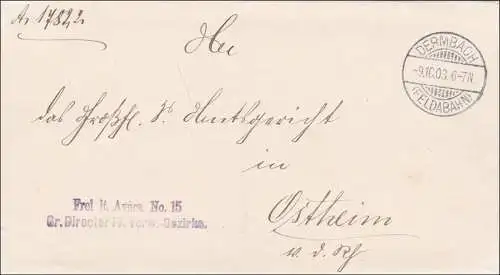 A. 17822
DERMBACH
-9.10.03. 6-7N.
(FELDABAHN)
An
das Großh. S. Amtsgericht
in
Frei lt. Avers. No. 15
Gr. Director IV. Verw.-Bezirks.
Ostheim
v. d. Rh